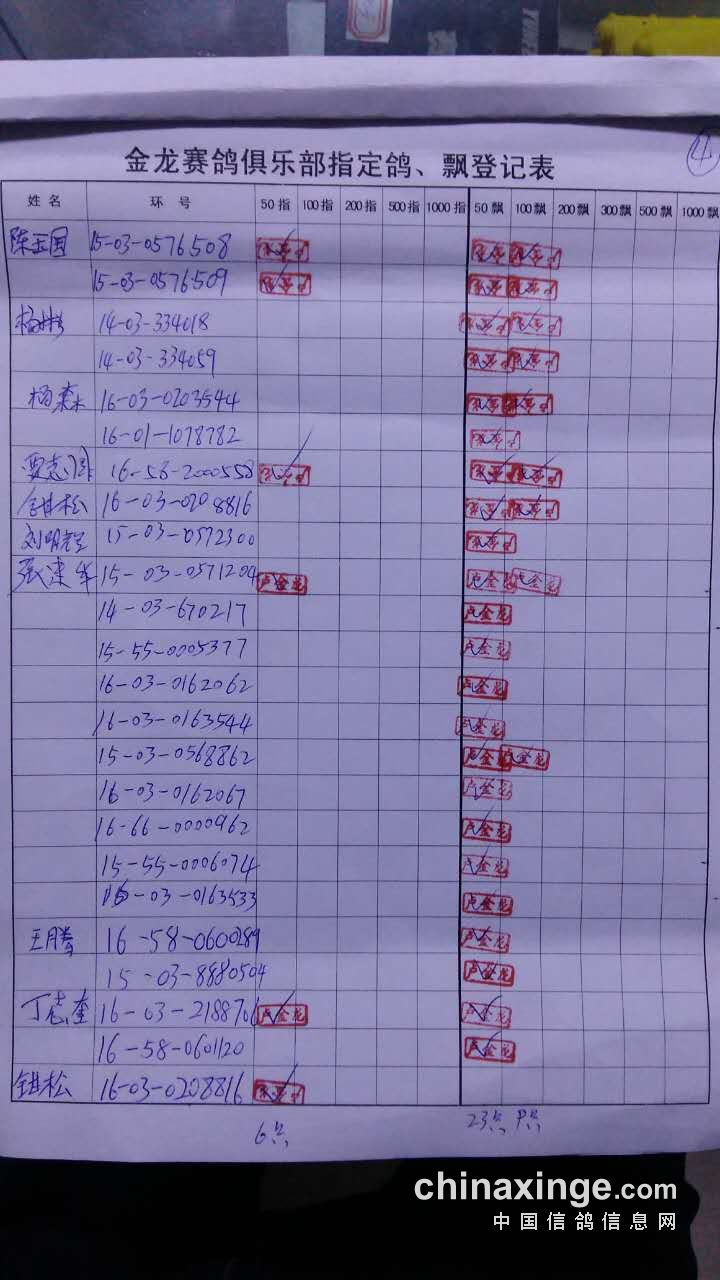 金龙赛鸽俱乐部指定鸽、飘登记表 4
姓名 环号 50指 100指 200指 500指 1000指 50飘 100飘 200飘 300飘 500飘 1000飘
陈玉国 15-03-0576508
15-03-0576509
14-03-334018
14-03-334059
杨森 16-03-0203544
16-01-1078782
贾志国 16-58-2000558
钳松 16-03-0208816
刘明 15-03-0572300
张建华 15-03-0571204 卢金龙 卢金龙 卢金龙
14-03-670217 卢金龙
15-55-0005377 卢金龙
16-03-0162062 卢金龙
16-03-0163544 卢金龙
15-03-0568862 卢金龙 卢金龙
16-03-0162067 卢金龙
16-66-0000962 卢金龙
15-55-0006074 卢金龙
16-03-0163533 卢金龙
王腾 16-58-0600289 卢金龙
15-03-8880504 卢金龙
丁志奎 16-03-2188706 卢金龙 卢金龙
16-58-0601120 卢金龙
钳松 16-03-0208816
6只 23只 9只
chinaxinge.com
中国信鸽信息网